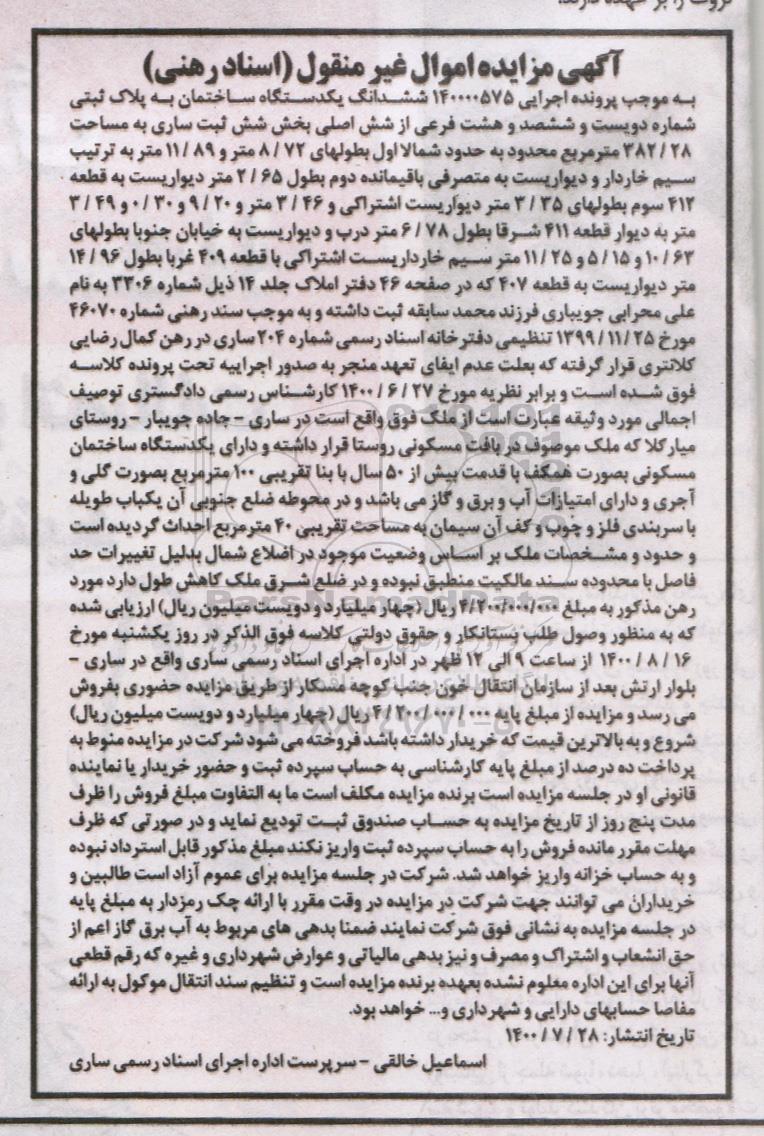 ثروت را بر عهده دارند.
آگهی مزایده اموال غیر منقول (اسناد رهنی)
به موجب پرونده اجرایی ۱۴۰۰۰۰۵۷۵ ششدانگ یکدستگاه ساختمان به پلاک ثبتی
شماره دویست و ششصد و هشت فرعی از شش اصلی بخش شش ثبت ساری به مساحت
۳۸۲/۲۸ مترمربع محدود به حدود شمالا اول بطولهای ۸/۷۲ متر و ۱۱/۸۹ متر به ترتیب
سیم خاردار و دیواریست به متصرفی باقیمانده دوم بطول ۲/۶۵ متر دیواریست به قطعه
۴۱۲ سوم بطولهای ۳/۳۵ متر دیواریست اشتراکی و ۳/۴۶ متر و ۹/۲۰ و ۰/۳۰ و ۳/۴۹
متر به دیوار قطعه ۴۱۱ شرقا بطول ۶/۷۸ متر درب و دیواریست به خیابان جنوبا بطولهای
۱۰/۶۳ و ۵/۱۵ و ۱۱/۲۵ متر سیم خارداریست اشتراکی با قطعه ۴۰۹ غربا بطول ۱۴/۹۶
متر دیواریست به قطعه ۴۰۷ که در صفحه ۴۶ دفتر املاک جلد ۱۴ ذیل شماره ۳۳۰۶ به نام
علی محرابی جویباری فرزند محمد سابقه ثبت داشته و به موجب سند رهنی شماره ۴۶۰۷۰
مورخ ۱۳۹۹/۱۱/۲۵ تنظیمی دفترخانه اسناد رسمی شماره ۲۰۴ ساری در رهن کمال رضایی
کلانتری قرار گرفته که بعلت عدم ایفای تعهد منجر به صدور اجراییه تحت پرونده کلاسه
فوق شده است و برابر نظریه مورخ ۱۴۰۰/۶/۲۷ کارشناس رسمی دادگستری توصیف
اجمالی مورد وثیقه عبارت است از ملک فوق واقع است در ساری - جاده جویبار - روستای
میارکلا که ملک موصوف در بافت مسکونی روستا قرار داشته و دارای یکدستگاه ساختمان
مسکونی بصورت همکف با قدمت بیش از ۵۰ سال با بنا تقریبی ۱۰۰ مترمربع بصورت گلی و
آجری و دارای امتیازات آب و برق و گاز می باشد و در محوطه ضلع جنوبی آن یکباب طویله
با سربندی فلز و چوب و کف آن سیمان به مساحت تقریبی ۴۰ مترمربع احداث گردیده است
و حدود و مشخصات ملک بر اساس وضعیت موجود در اضلاع شمال بدلیل تغییرات حد
فاصل با محدوده سند مالکیت منطبق نبوده و در ضلع شرق ملک کاهش طول دارد مورد
رهن مذکور به مبلغ ۴/۲۰۰/۰۰۰/۰۰۰ ریال (چهار میلیارد و دویست میلیون ریال) ارزیابی شده
که به منظور وصول طلب بستانکار و حقوق دولتی کلاسه فوق الذکر در روز یکشنبه مورخ
۱۴۰۰/۸/۱۶ از ساعت ۹ الی ۱۲ ظهر در اداره اجرای اسناد رسمی ساری واقع در ساری -
بلوار ارتش بعد از سازمان انتقال خون جنب کوچه مددکار از طریق مزایده حضوری بفروش
می رسد و مزایده از مبلغ پایه ۴/۲۰۰/۰۰۰/۰۰۰ ریال (چهار میلیارد و دویست میلیون ریال)
شروع و به بالاترین قیمت که خریدار داشته باشد فروخته می شود شرکت در مزایده منوط به
پرداخت ده درصد از مبلغ پایه کارشناسی به حساب سپرده ثبت و حضور خریدار یا نماینده
قانونی او در جلسه مزایده است برنده مزایده مکلف است ما به التفاوت مبلغ فروش را ظرف
مدت پنج روز از تاریخ مزایده به حساب صندوق ثبت تودیع نماید و در صورتی که ظرف
مهلت مقرر مانده فروش را به حساب سپرده ثبت واریز نکند مبلغ مذکور قابل استرداد نبوده
و به حساب خزانه واریز خواهد شد. شرکت در جلسه مزایده برای عموم آزاد است طالبین و
خریداران می توانند جهت شرکت در مزایده در وقت مقرر با ارائه چک رمزدار به مبلغ پایه
در جلسه مزایده به نشانی فوق شرکت نمایند ضمنا بدهی های مربوط به آب برق گاز اعم از
حق انشعاب و اشتراک و مصرف و نیز بدهی مالیاتی و عوارض شهرداری و غیره که رقم قطعی
آنها برای این اداره معلوم نشده بعهده برنده مزایده است و تنظیم سند انتقال موکول به ارائه
مفاصا حسابهای دارایی و شهرداری و... خواهد بود.
تاریخ انتشار: ۱۴۰۰/۷/۲۸
اسماعیل خالقی - سرپرست اداره اجرای اسناد رسمی ساری
ParsNamadData